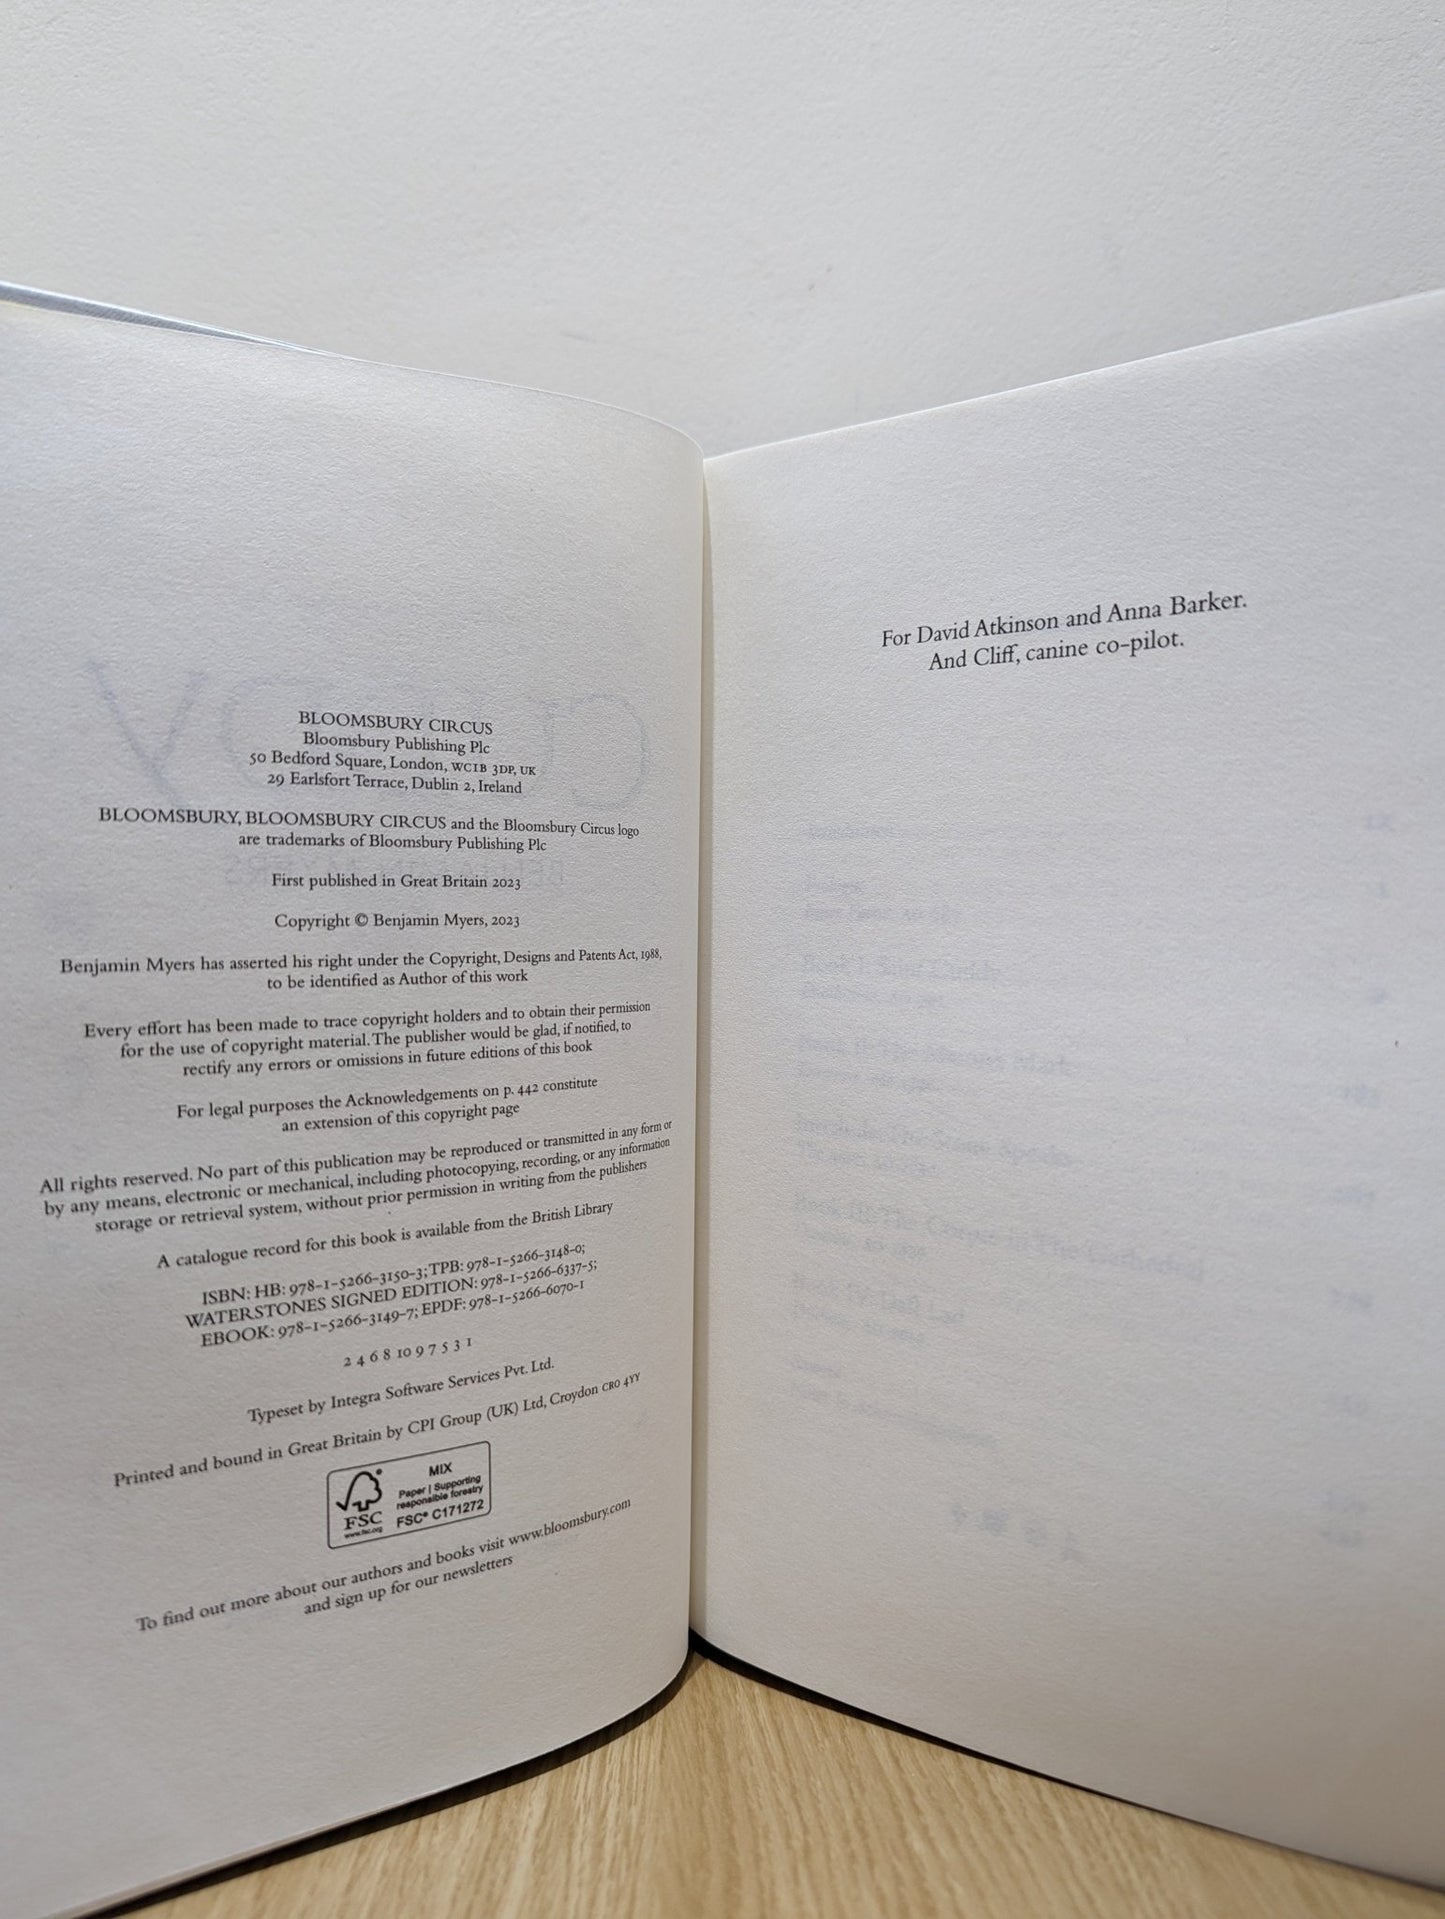 BLOOMSBURY CIRCUS
Bloomsbury Publishing Plc
50 Bedford Square, London, WC1B 3DP, UK
29 Earlsfort Terrace, Dublin 2, Ireland
BLOOMSBURY, BLOOMSBURY CIRCUS and the Bloomsbury Circus logo
are trademarks of Bloomsbury Publishing Plc
First published in Great Britain 2023
Copyright © Benjamin Myers, 2023
Benjamin Myers has asserted his right under the Copyright, Designs and Patents Act, 1988,
to be identified as Author of this work
Every effort has been made to trace copyright holders and to obtain their permission
for the use of copyright material. The publisher would be glad, if notified, to
rectify any errors or omissions in future editions of this book
For legal purposes the Acknowledgements on p. 442 constitute
an extension of this copyright page
All rights reserved. No part of this publication may be reproduced or transmitted in any form or
by any means, electronic or mechanical, including photocopying, recording, or any information
storage or retrieval system, without prior permission in writing from the publishers
A catalogue record for this book is available from the British Library
ISBN: HB: 978-1-5266-3150-3; TPB: 978-1-5266-3148-0;
WATERSTONES SIGNED EDITION: 978-1-5266-6337-5;
EBOOK: 978-1-5266-3149-7; EPDF: 978-1-5266-6070-1
2 4 6 8 10 9 7 5 3 1
Typeset by Integra Software Services Pvt. Ltd.
Printed and bound in Great Britain by CPI Group (UK) Ltd, Croydon CR0 4YY
FSC
www.fsc.org
MIX
Paper | Supporting
responsible forestry
FSC® C171272
To find out more about our authors and books visit www.bloomsbury.com
and sign up for our newsletters
For David Atkinson and Anna Barker.
And Cliff, canine co-pilot.